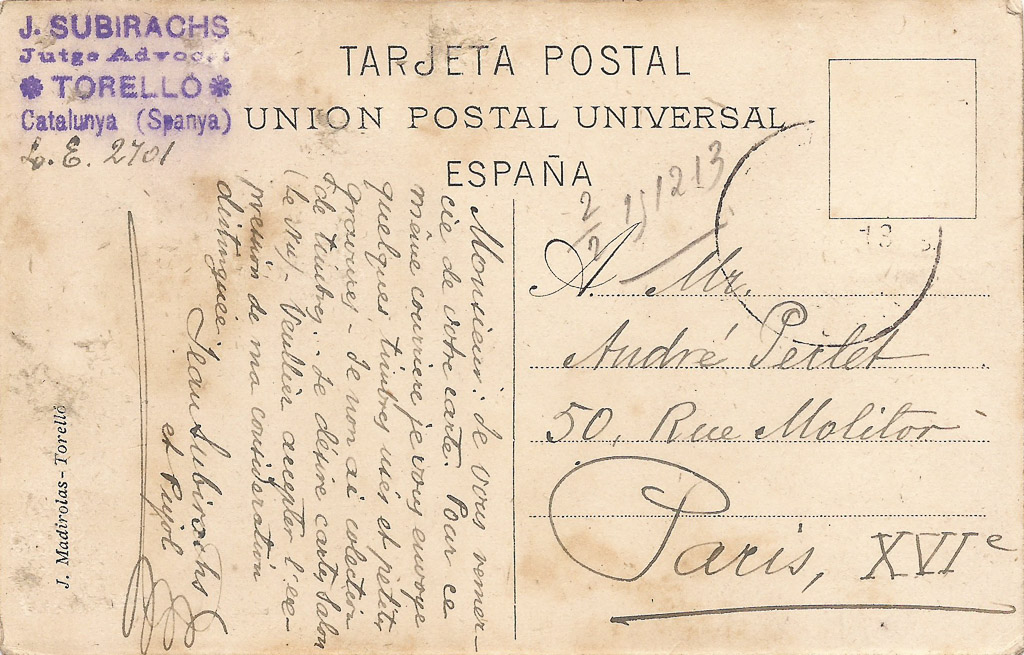 J. SUBIRACHS
Jutge Advocat
TORELLÓ
Catalunya (Spanya)
L. E. 2701
TARJETA POSTAL
UNION POSTAL UNIVERSAL
ESPAÑA
2/2 15 12 13
13
Monsieur: Je vous remer-
cie de votre carte. Pour ce
même courriere je vous envoye
quelques timbres usés et petits
gravures - Je non ai colection
de timbres. Je désire carts, salon
(le nu) - Veuller accepter l'ex-
presión de ma consideration
distinguée
Jean Subirachs
et Pujol
A. Mr.
André Peilet
50, Rue Molitor
Paris, XVIe
J. Madirolas - Torelló